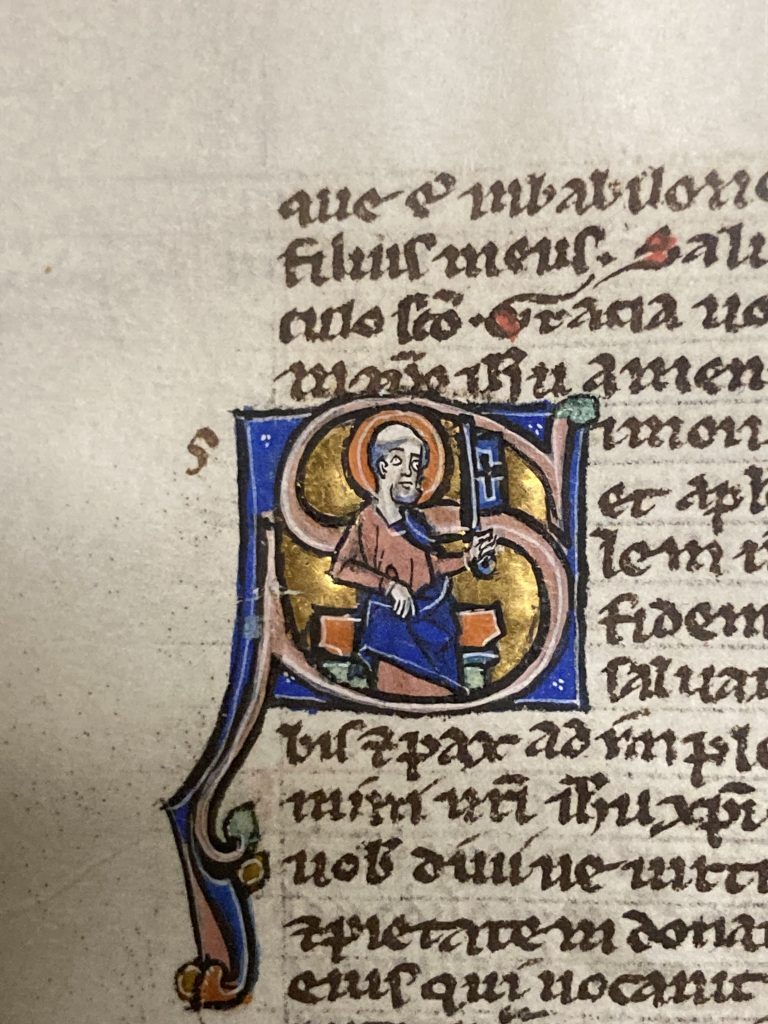 que ē in babilone
filius meus. Salu
culo sc̄o. Gracia uo
in xp̄o ih̄u amen
s
S imon
et apl
lem n
fidem
saluat
bis ⁊ pax ad impl
mini nr̄i ih̄u xp̄i
uob diuine uirt
⁊ pietatem dona
eius qui uocauit